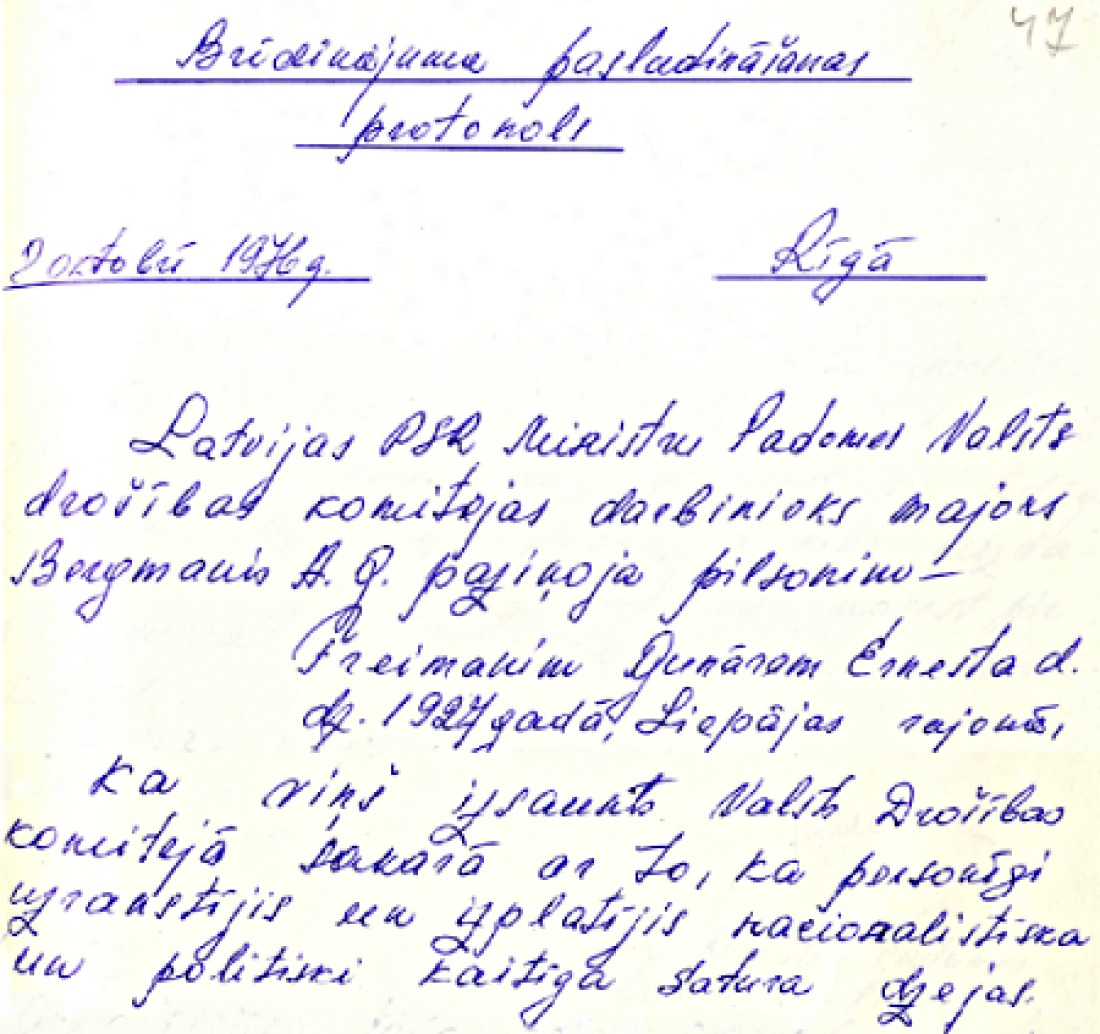 47
Brīdinājuma pasludināšanas
protokols
2 octobrī 1976g.
Rīgā
Latvijas PSR Ministru Padomes Valsts
drošības komitejas darbinieks majors
Bergmanis A. Q. paziņoja pilsonim –
Freimanim Gunāram Ernesta d.
dz. 1927 gadā, Liepājas rajonā,
ka viņš izsaukts Valsts Drošības
komitejā sakarā ar to, ka personīgi
uzrakstījis un izplatījis nacionalistiska
un politiski kaitīga satura dzejas.